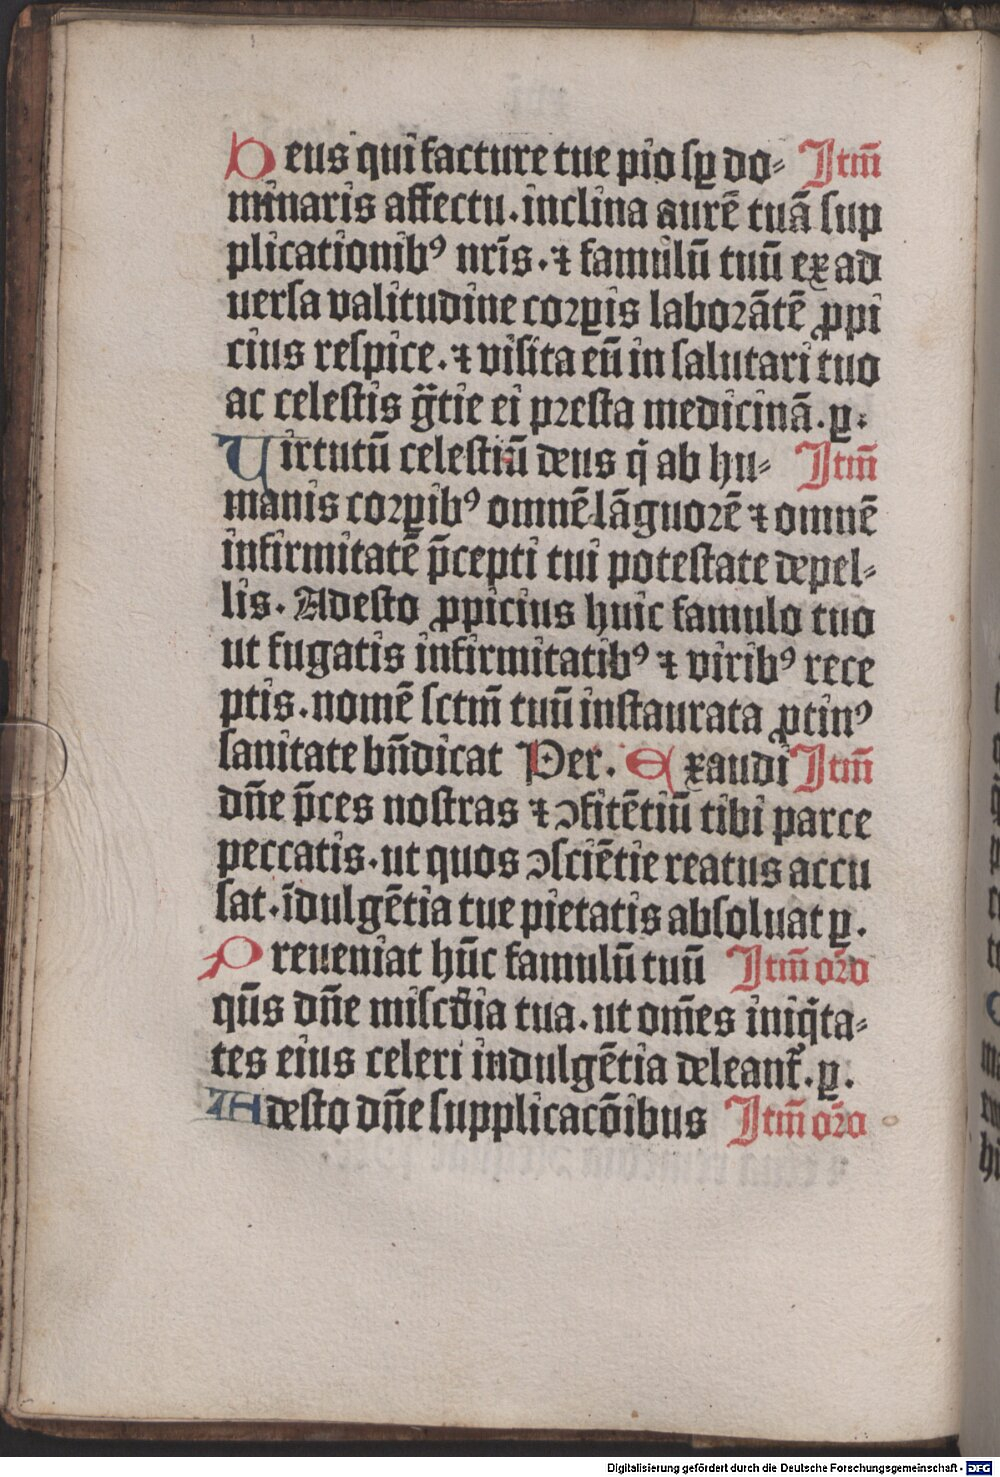 Deus qui facture tue pio sꝑ do⸗ Itm̄
minaris affectu. inclina aurē tuā sup
plicationibꝰ nr̄is. ⁊ famulū tuū ex ad
uersa valitudine corꝑis laborātē ꝓpi
cius respice. ⁊ visita eū in salutari tuo
ac celestis gr̄tie ei presta medicinā. ꝑ:
Uirtutū celestiū deus q̇ ab hu⸗ Itm̄
manis corꝑibꝰ omnē lāguorē ⁊ omnē
infirmitatē p̄cepti tui potestate depel⸗
lis. Adesto ꝓpicius huic famulo tuo
ut fugatis infirmitatibꝰ ⁊ viribꝰ rece
ptis. nomē sctm̄ tuū instaurata ꝓtinꝰ
sanitate bn̄dicat Per. Exaudi Itm̄
dn̄e p̄ces nostras ⁊ ↄfitētiū tibi parce
peccatis. ut quos ↄsciētie reatus accu
sat. īdulgētia tue pietatis absoluat ꝑ.
Preueniat hūc famulū tuū Itm̄ oro
qūs dn̄e misc̄dia tua. ut om̄es iniq̇ta⸗
tes eius celeri indulgētia deleant᷑. ꝑ.
Adesto dn̄e supplicacōibus Itm̄ oro
Digitalisierung gefördert durch die Deutsche Forschungsgemeinschaft - DFG